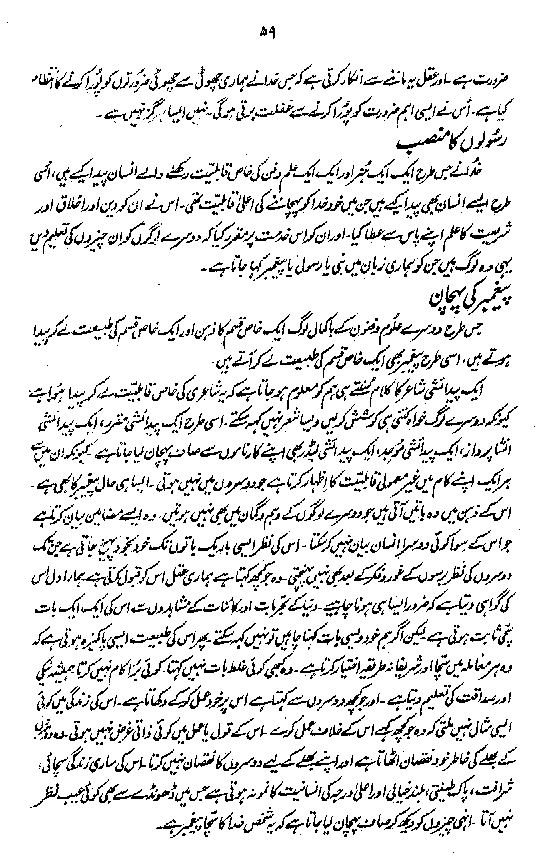 ۵۹
ضرورت ہے۔ اور عقل یہ ماننے سے انکار کرتی ہے کہ جس خدا نے ہماری چھوٹی سے چھوٹی ضرورتوں کو پورا کرنے کا انتظام
کیا ہے۔ اُس نے ایسی اہم ضرورت کو پورا کرنے سے غفلت برتی ہوگی۔ نہیں ایسا ہرگز نہیں ہے۔
رسُولوں کا منصب
خدا نے جس طرح ایک ایک ہُنر اور ایک ایک علم و فن کی خاص قابلیت رکھنے والے انسان پیدا کیے ہیں، اُسی
طرح ایسے انسان بھی پیدا کیے ہیں جن میں خود خدا کو پہچاننے کی اعلیٰ قابلیت تھی۔ اس نے ان کو دین اور اخلاق اور
شریعت کا علم اپنے پاس سے عطا کیا۔ اور ان کو اس خدمت پر مقرر کیا کہ دوسرے لوگوں کو ان چیزوں کی تعلیم دیں
یہی وہ لوگ ہیں جن کو ہماری زبان میں نبی یا رسول یا پیغمبر کہا جاتا ہے۔
پیغمبر کی پہچان
جس طرح دوسرے علوم و فنون کے باکمال لوگ ایک خاص قسم کا ذہن اور ایک خاص قسم کی طبیعت لے کر پیدا
ہوتے ہیں، اسی طرح پیغمبر بھی ایک خاص قسم کی طبیعت لے کر آتے ہیں۔
ایک پیدائشی شاعر کا کلام سُنتے ہی ہم کو معلوم ہو جاتا ہے کہ یہ شاعری کی خاص قابلیت لے کر پیدا ہوا ہے
کیونکہ دوسرے لوگ خواہ کتنی ہی کوشش کر لیں ویسا شعر نہیں کہہ سکتے۔ اسی طرح ایک پیدائشی مقرر، ایک پیدائشی
انشا پرداز، ایک پیدائشی موجد، ایک پیدائشی لیڈر بھی اپنے کارناموں سے صاف پہچان لیا جاتا ہے کیونکہ ان میں سے
ہر ایک اپنے کام میں غیر معمولی قابلیت کا اظہار کرتا ہے جو دوسروں میں نہیں ہوتی۔ ایسا ہی حال پیغمبر کا بھی ہے۔
اس کے ذہن میں وہ باتیں آتی ہیں جو دوسرے لوگوں کے وہم و گمان میں بھی نہیں ہوتیں۔ وہ ایسے مضامین بیان کرتا ہے
جو اس کے سوا کوئی دوسرا انسان بیان نہیں کر سکتا۔ اس کی نظر ایسی باریک باتوں تک خود بخود پہنچ جاتی ہے جن تک
دوسروں کی نظر برسوں کے غور و فکر کے بعد بھی نہیں پہنچتی۔ وہ جو کچھ کہتا ہے ہماری عقل اس کو قبول کرتی ہے ہمارا دل اس
کی گواہی دیتا ہے کہ ضرور ایسا ہی ہونا چاہیے۔ دنیا کے تجربات اور کائنات کے مشاہدوں سے اس کی ایک ایک بات
سچی ثابت ہوتی ہے لیکن اگر ہم خود ویسی بات کہنا چاہیں تو نہیں کہہ سکتے۔ پھر اس کی طبیعت ایسی پاکیزہ ہوتی ہے کہ
وہ ہر معاملہ میں سچا اور شریفانہ طریقہ اختیار کرتا ہے۔ وہ کبھی کوئی غلط بات نہیں کہتا۔ کوئی بُرا کام نہیں کرتا ہمیشہ نیکی
اور صداقت کی تعلیم دیتا ہے۔ اور جو کچھ دوسروں سے کہتا ہے اس پر خود عمل کر کے دکھاتا ہے۔ اس کی زندگی میں کوئی
ایسی مثال نہیں ملتی کہ وہ جو کچھ کہے اس کے خلاف عمل کرے۔ اس کے قول یا عمل میں کوئی ذاتی غرض نہیں ہوتی۔ وہ دوسروں
کے بھلے کی خاطر خود نقصان اٹھاتا ہے اور اپنے بھلے کے لیے دوسروں کا نقصان نہیں کرتا۔ اس کی ساری زندگی سچائی،
شرافت، پاک طینتی، بلند خیالی اور اعلیٰ درجہ کی انسانیت کا نمونہ ہوتی ہے جس میں ڈھونڈے سے بھی کوئی عیب نظر
نہیں آتا۔ انہی چیزوں کو دیکھ کر صاف پہچان لیا جاتا ہے کہ یہ شخص خدا کا سچا پیغمبر ہے۔